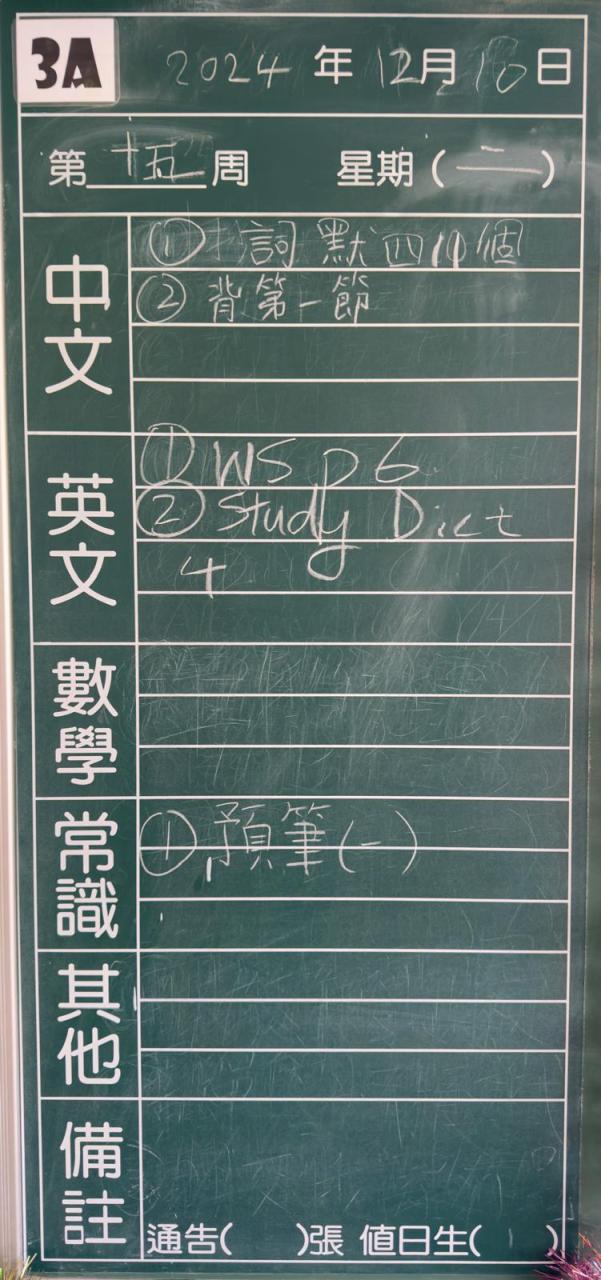 3A 2024年12月10日
第十五周 星期(二)
中文
① 詞默四11個
② 背第一節
英文
① WS p6
② Study Dict
4
數學
常識
① 預筆(一)
其他
備註
通告( )張 值日生( )